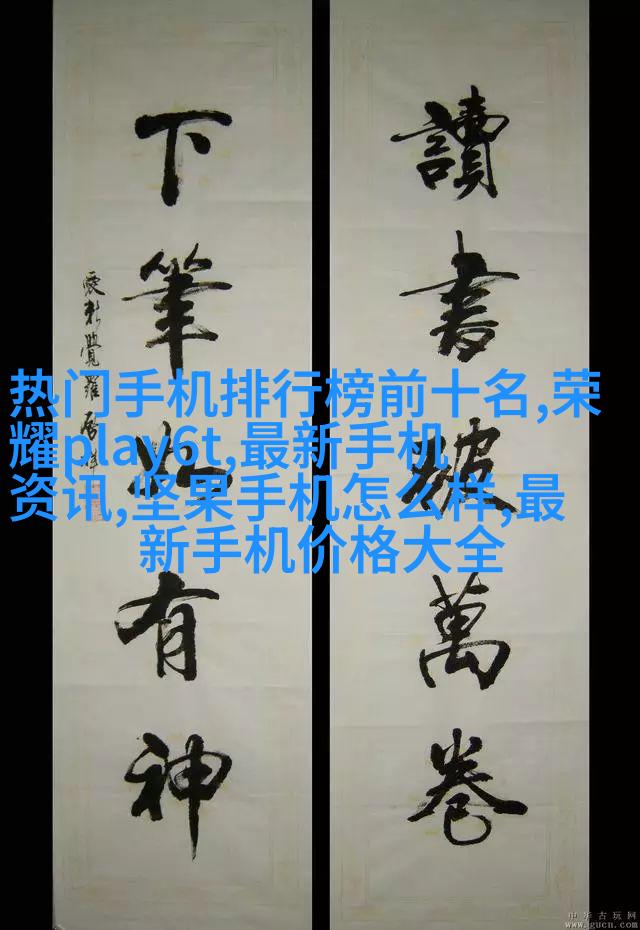 讀書破萬卷
下筆如有神
愛新覺羅
热门手机排行榜前十名,荣
耀play6t,最新手机
资讯,坚果手机怎么样,最
新手机价格大全
中华古玩网
www.gucn.com